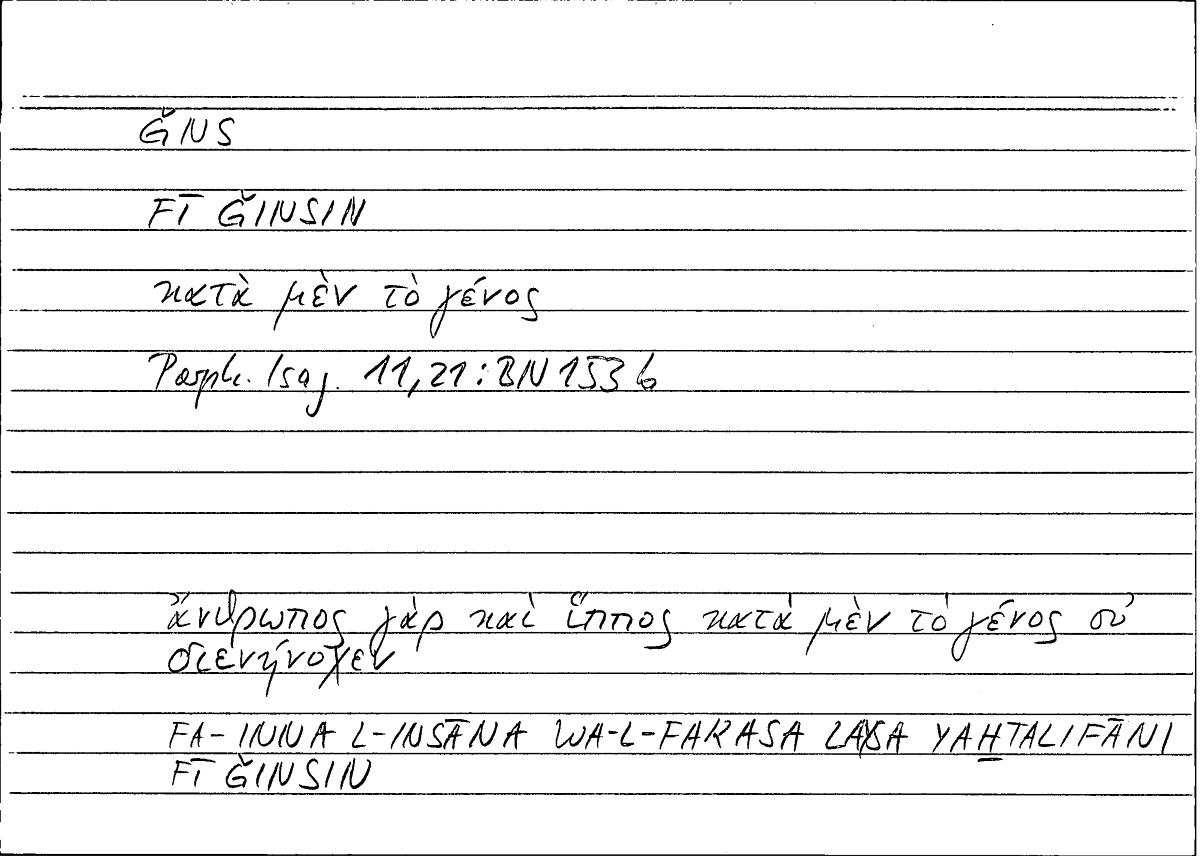 ǦNS
FĪ ǦINSIN
κατὰ μὲν τὸ γένος
Porph. Isag. 11,21: BN 153 b
ἄνθρωπος γὰρ καὶ ἵππος κατὰ μὲν τὸ γένος οὐ
διενήνοχεν
FA-INNA L-INSĀNA WA-L-FARASA LAYSA YAH̲TALIFĀNI
FĪ ǦINSIN